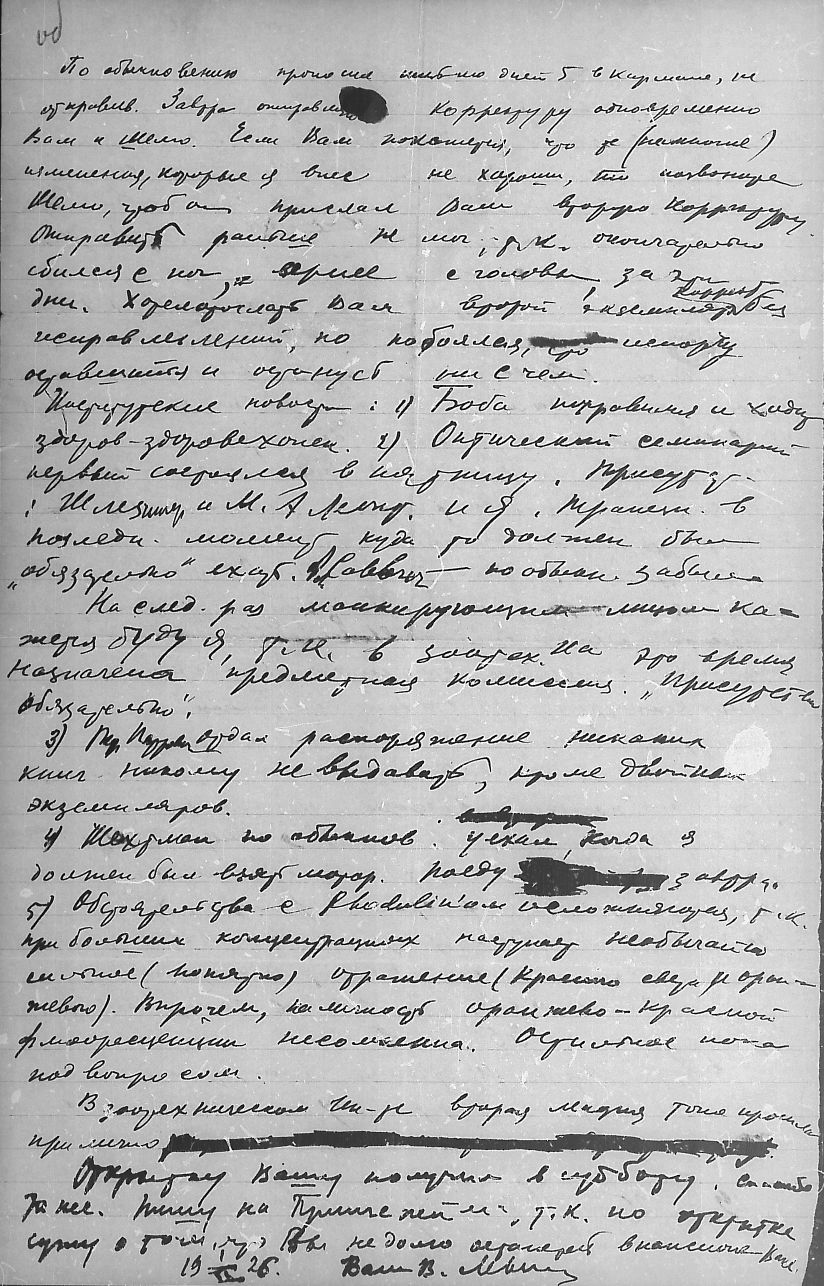 По обыкновению проносил письмо дней 5 в кармане, не
отправив. Завтра корректуру одновременно
Вам и Шелю. Если Вам покажется, что те (немногие)
изменения, которые я внес не хороши, то позвоните
чтоб он прислал Вам вторую корректуру.
Отправить раньше не мог, т.к. окончательно
сбился с ног, вернее с головы, за эти
дни. Хотел послать Вам второй экземпляр без
исправлений, но побоялся, что испорчу
оставшийся и останусь ни с чем.
Институтские новости: 1) Боба поправился и ходит
здоров-здоровехонек. 2) Оптический семинарий
первый состоялся в пятницу. Присутст-
: и М. А. Леонт. и я. в
последн. момент куда то должен был
„обязательно" ехать. по обыкн. забыл
На след. раз манкирующим лицом ка-
жется буду я, т.к. в зоотех. на это время
назначена предметная комиссия. „Присутствие
обязательно".
3) отдал распоряжение никаких
книг никому не выдавать, кроме двойных
экземпляров.
4) Шехтман по обыкнов. уехал, когда я
должен был взять мотор. Поеду завтра.
5) Обстоятельства с Rhodulin'ом осложняются, т.к.
при больших концентрациях наступает необычайно
сильное (понятно) отражение (красного света и оран-
жевого). Впрочем, наличность оранжево-красной
флюоресценции несомненна. Остальное пока
под вопросом.
В зоотехническом Ин-те вторая лекция тоже прошла
прилично
Открытку Вашу получил в субботу. Спасибо
за нее. Пишу на т.к. по открытке
сужу о том, что Вы недолго останетесь в пансионе
19 26. Ваш В.